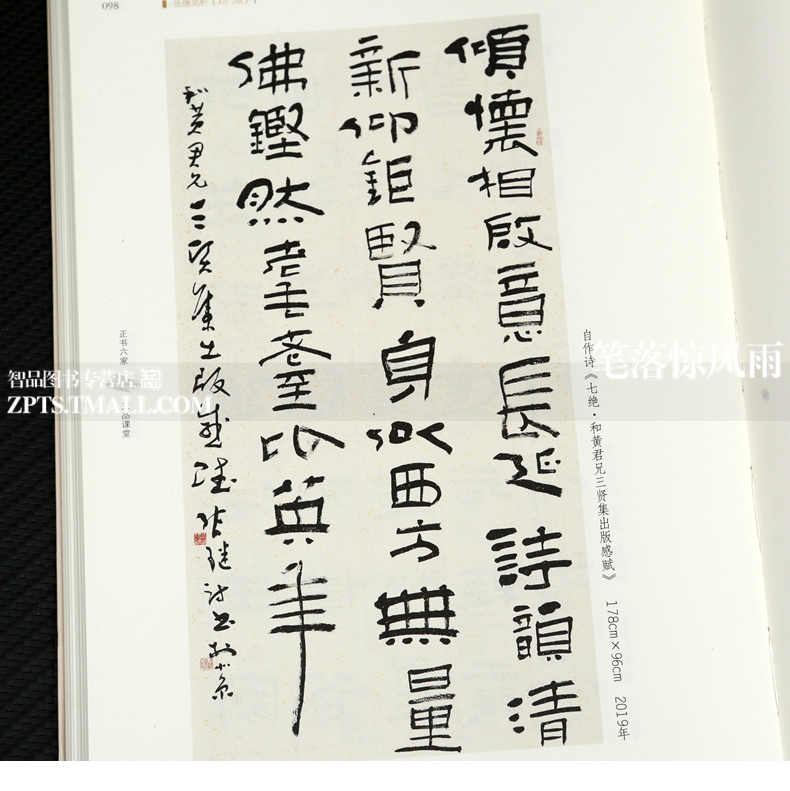 098
傾懷相啟意長延詩韻清
新仰鉅賢身似西方無量
佛鏗然耄耋比英年
和黄君兄三賢集出版感賦張継詩書於北京
自作诗《七绝·和黄君兄三贤集出版感赋》 178cm×96cm 2019年
正书六家
品课堂
智品图书专营店
ZPTS.TMALL.COM
笔落惊风雨